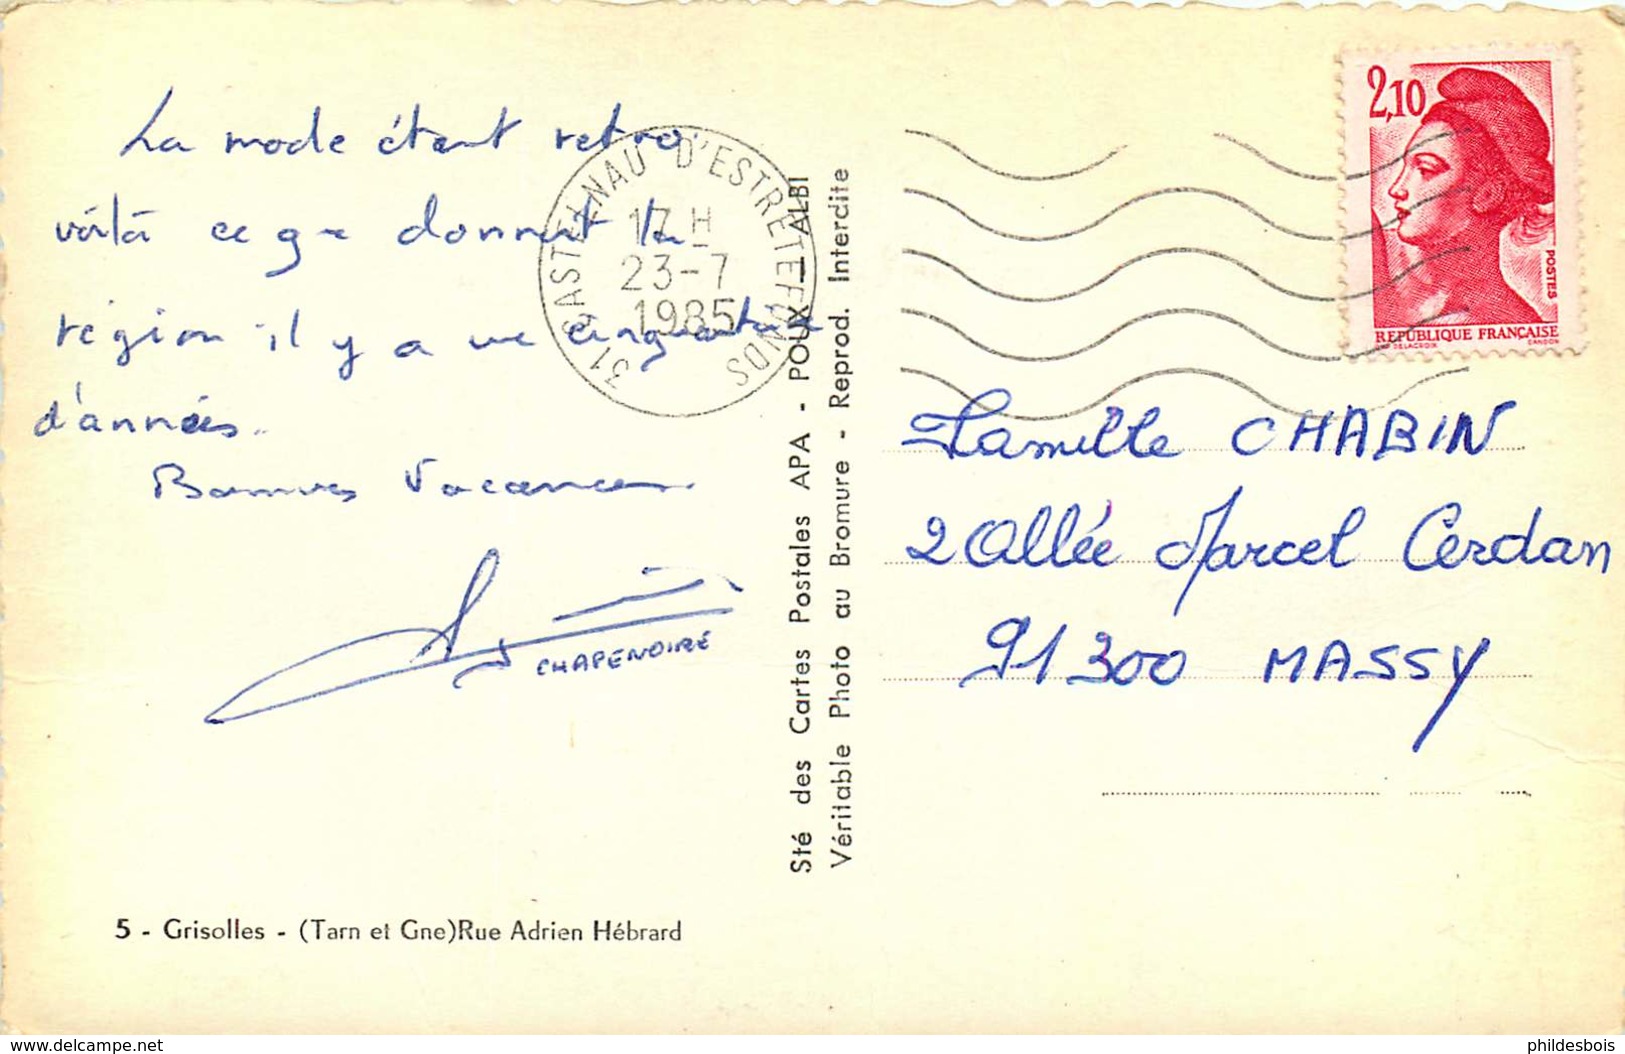 La mode étant retro
voilà ce que donnait la
région, il y a une cinquantaine
d'années.
Bonnes Vacances.
CHAPENOIRE
5 - Grisolles - (Tarn et Gne)Rue Adrien Hébrard
31 CASTELNAU D'ESTRETEFONDS
17 H
23-7
1985
Sté des Cartes Postales APA - POUX - ALBI
Véritable Photo au Bromure - Reprod. Interdite
2,10
POSTES
REPUBLIQUE FRANÇAISE
DELACROIX
GANDON
Famille CHABIN
2 Allée Marcel Cerdan
91300 MASSY
www.delcampe.net
phildesbois